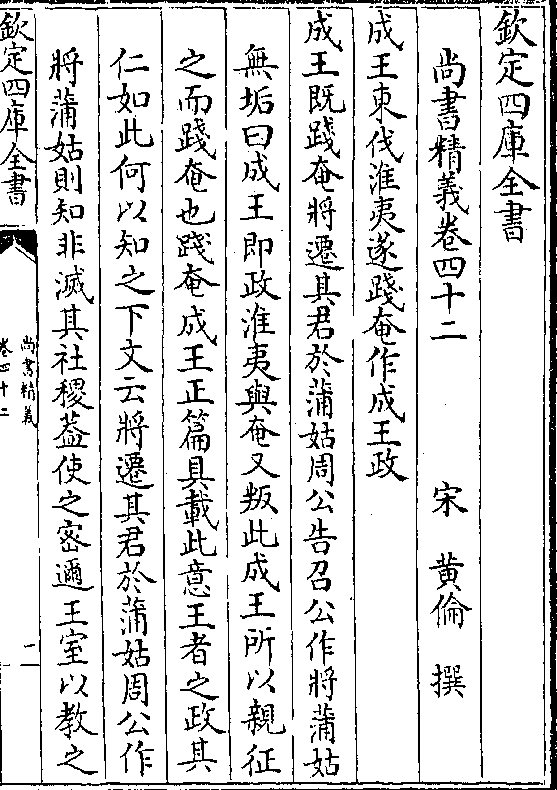 欽定四庫全書
尚書精義卷四十二　宋　黄倫　撰
成王東伐淮夷遂踐奄作成王政
成王既踐奄將遷其君於蒲姑周公告召公作將蒲姑
無垢曰成王即政淮夷與奄又叛此成王所以親征
之而踐奄也踐奄成王正篇具載此意王者之政其
仁如此何以知之下文云將遷其君於蒲姑周公作
將蒲姑則知非滅其社稷葢使之密邇王室以教之
欽定四庫全書
尚書精義
卷四十二
一